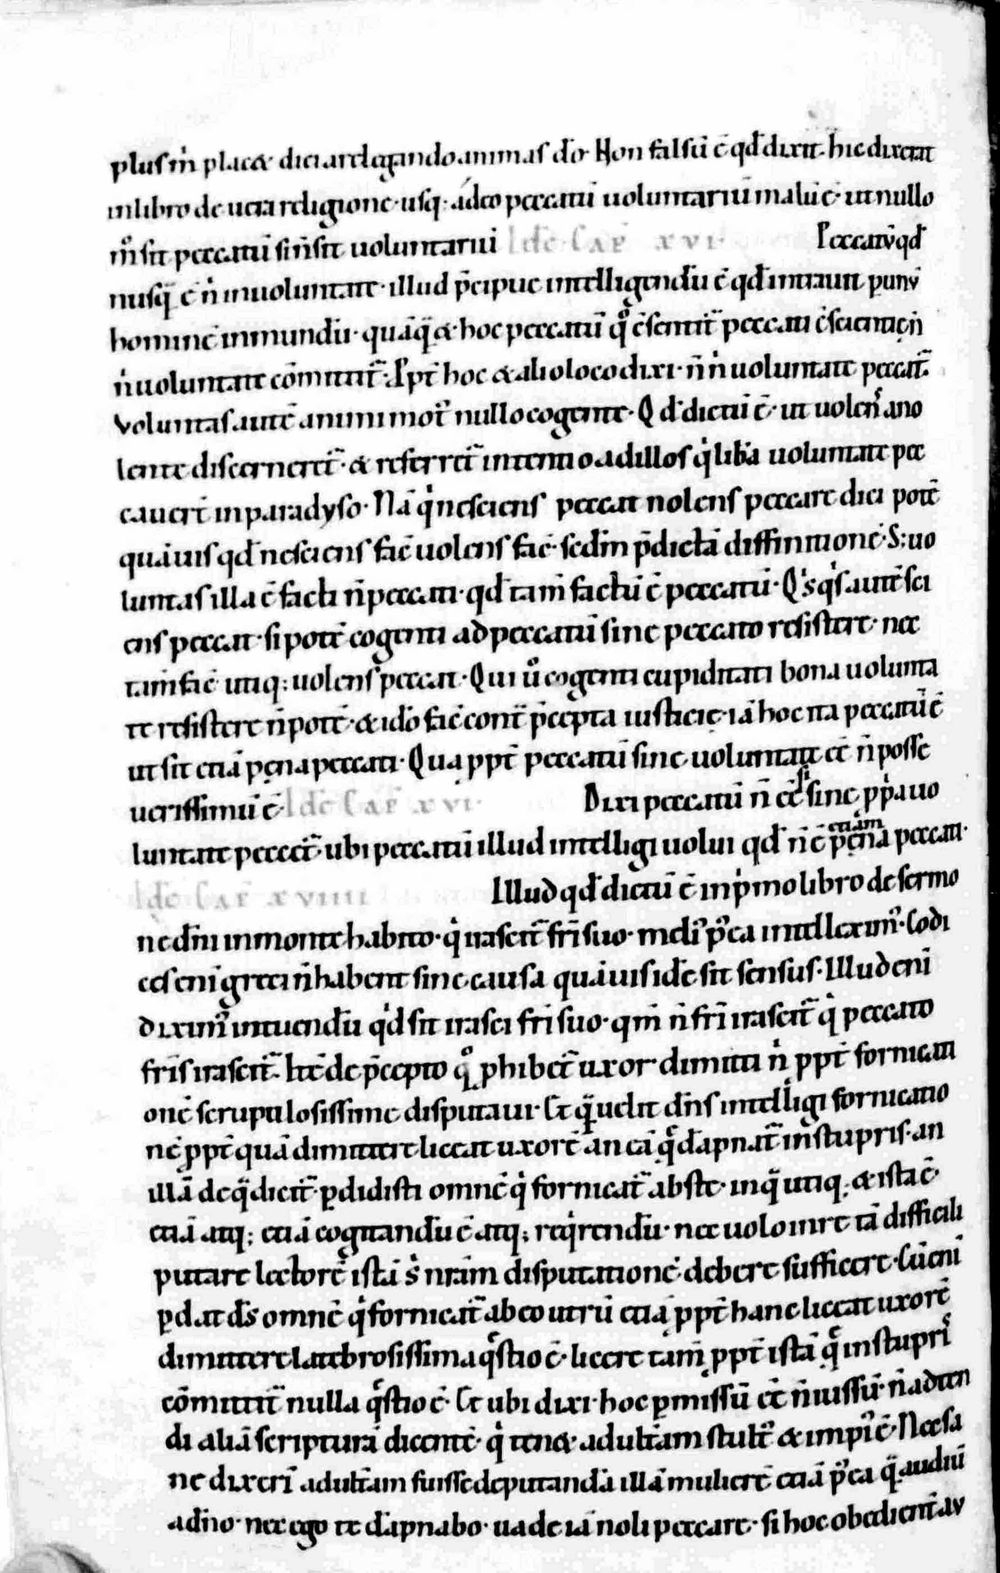 plus m̄ placet dici a religando animas dō. Non falsū ē qd̄ dixit. hic dixerat
in libro de uera religione. usq; adeo peccatū uoluntariū malū ē. ut nullo
m̊ sit peccatū si n̄ sit uoluntariū Idē Cap̄ xvi. Peccatū qd̄
nusq̄ ē n̄ in uoluntate. illud p̄cipue intelligendū ē qd̄ punir̄
hominē inmundū. quāq̄ & hoc peccatū q̊ ē
n̄ uoluntate cōmittit̄. Ppt̄ hoc & alio loco dixi. n̄ n̄ uoluntate peccat̄.
Voluntas autē animi mot̄ nullo cogente. Qd̄ dictū ē. ut uolen̄ a no
lente discernerēt̄. & referret̄ intentio ad illos q̇ libā uoluntate pec
cauer̄ in paradyso. Nā q̇ nesciens peccat nolens peccare dici potē
quāuis qd̄ nesciens fac̄ uolens fac̄. sedm̄ p̄dictā diffinitionē. S; uo
luntas illa ē facti n̄ peccati. qd̄ tam̄ factū ē peccatū. Qs̄q̇s autē sci
ens peccat. si potē cogenti ad peccatū sine peccato resistere. nec
tam̄ fac̄ utiq; uolens peccat. Qui ū cogenti cupiditati bona uolunta
te resistere n̄ potē. & idō fac̄ cont̄ p̄cepta iusticie. iā hoc ita peccatū ē
ut sit etiā pena peccati. Qua ppt̄ peccatū sine uoluntate eē n̄ posse
uerissimū ē Idē Cap̄ xvi. Dixi peccatū n̄ eē si sine ppa uo
luntate peccet̄. ubi peccatū illud intelligi uolui qd̄ n̄ ē etiam pena peccati.
Idē Cap̄ xviiii Illud qd̄ dictū ē in p̄mo libro de sermo
ne dn̄i in monte habito. q̇ irascit̄ fr̄i suo. meli p̄ea intelleximˀ. Codi
ces enī greci n̄ habent sine causa quāuis idē sit sensus. Illud enī
diximˀ intuendū qd̄ sit irasci fr̄i suo. qm̄ n̄ fr̄i irascit̄ q̇ peccato
fr̄is irascit̄. Itē de p̄cepto q̊ phibet̄ uxor dimitti n̄ ppt̄ fornicati
onē scrupulosissime disputaui. Et quelit dn̄s intelligi fornicatio
nē ppt̄ quā dimittere liceat uxorē an eā q̄ dāpnat̄ in stupris. an
illā de q̄ dicit̄. pdidisti omnē q̇ fornicat̄ abs te. inq̄ utiq; & ista ē
etiā atq; etiā cogitandū ē atq; reqrendū. nec uolo in re tā difficili
putare lectorē istā s̄ nrām disputationē debere sufficere. Cū enī
pdat ds̄ omnē q̇ fornicat̄ ab eo utrū etiā ppt̄ hanc liceat uxorē
dimittere latebrosissima qstio ē. licere tam̄ ppt̄ istā q̄ in stupri
cōmittit̄ nulla qstio ē. Et ubi dixi hoc pmissū eē n̄ iussū. n̄ adten
di aliā scripturā dicentē. q̇ tenet adulterām stultˀ & impiˀ ē. Nec sa
ne dixeri adulterām fuisse deputandā illā mulierē etiā p̄ea q̄ audiu
a dn̄o. nec ego te dāpnabo. uade iā noli peccare. si hoc obedienter̄ au